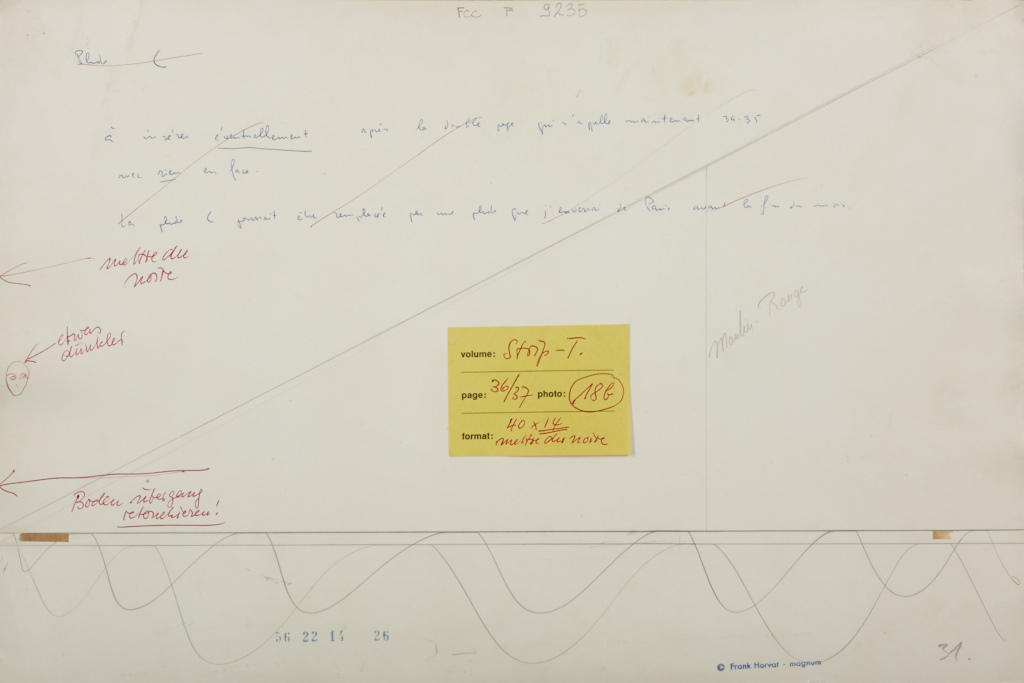 FCC P 9235
Photo C
à insérer éventuellement après la double page qui s'appelle maintenant 34-35
avec rien en face.
La photo C pourrait être remplacée par une photo que j'enverrai de Paris avant la fin du mois.
mettre du
noire
etwas
dunkler
Moulin-Rouge
volume: Strip-T.
page: 36/37 photo: 18b
format: 40 x 14
mettre du noire
Boden übergang
retouchieren!
56 22 14 26
31.
© Frank Horvat - magnum